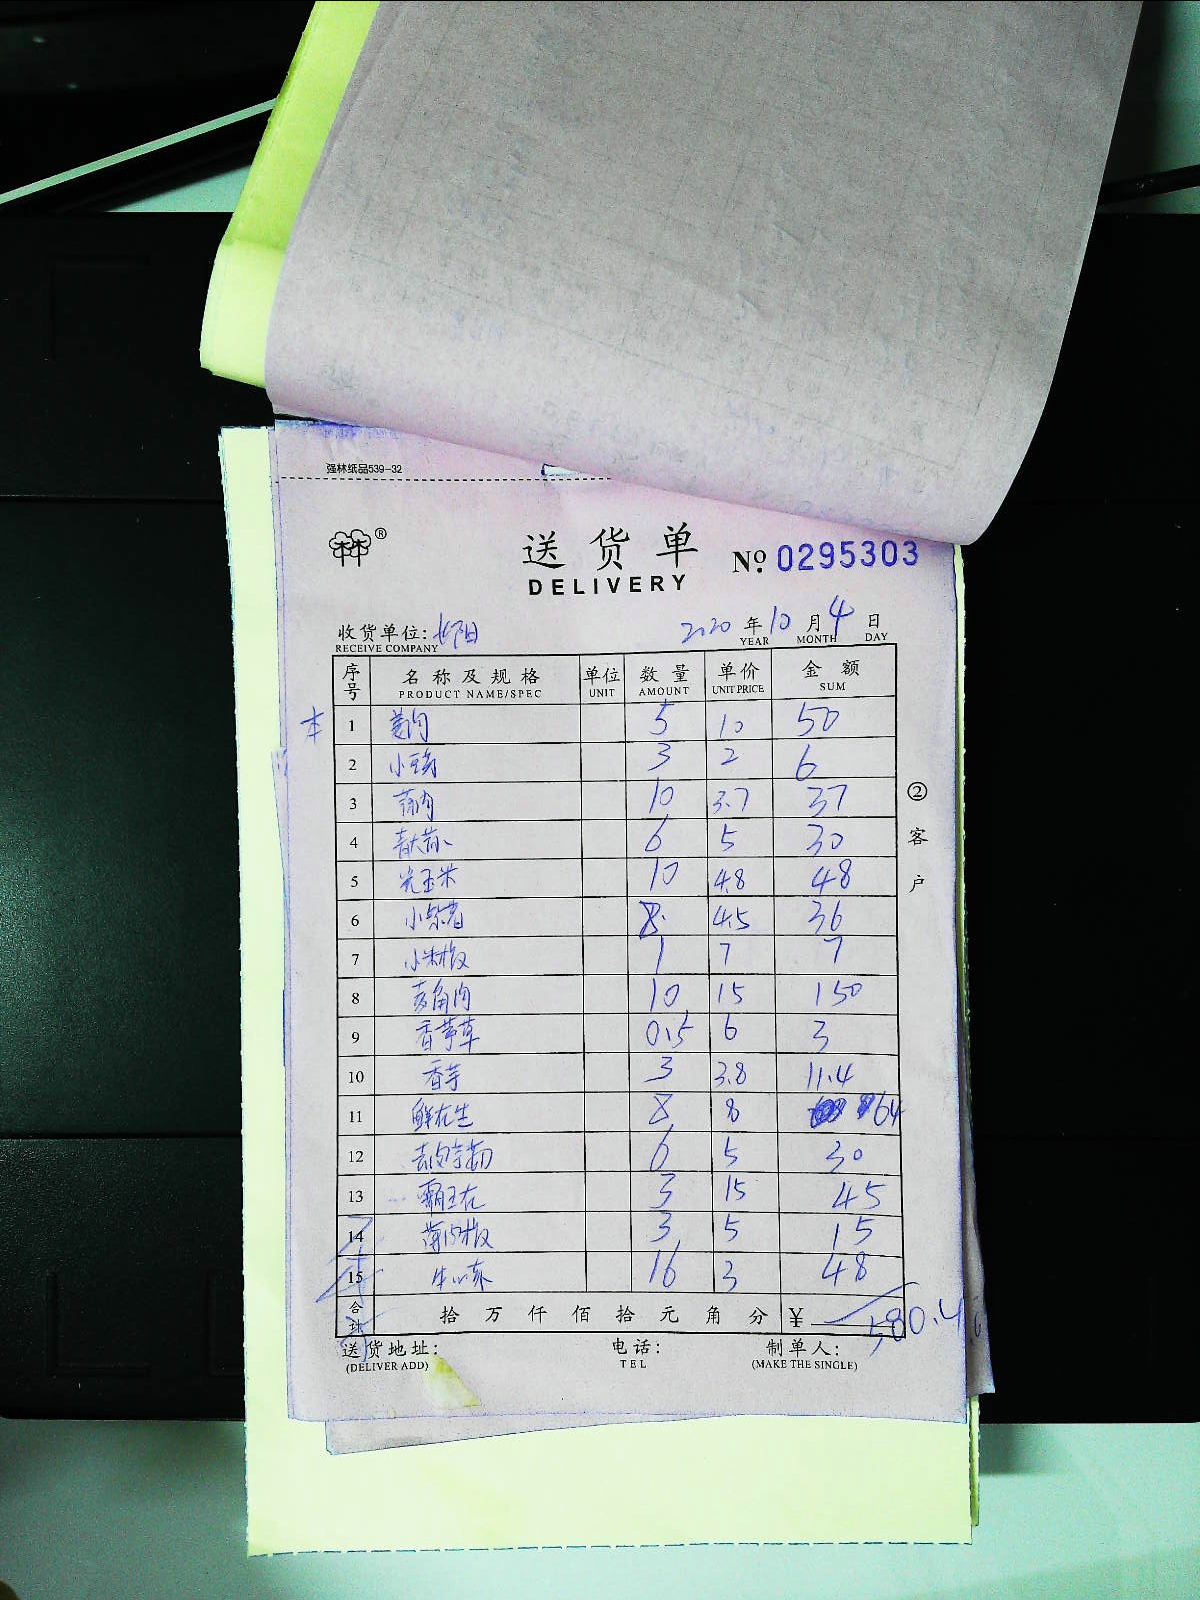 强林纸品539-32
送货单
DELIVERY
No. 0295303
收货单位:
RECEIVE COMPANY
2020 年 10 月 4 日
YEAR MONTH DAY
序号 名称及规格 单位 数量 单价 金额
PRODUCT NAME/SPEC UNIT AMOUNT UNIT PRICE SUM
本
1 5 10 50
2 3 2 6
3 10 3.7 37
4 6 5 30
5 光玉米 10 4.8 48
6 小紫 8 4.5 36
7 小米椒 1 7 7
8 10 15 150
9 香茅草 0.5 6 3
10 香芋 3 3.8 11.4
11 鲜花生 8 8 64
12 6 5 30
13 霸王花 3 15 45
14 薄皮椒 3 5 15
15 16 3 48
合计 拾万仟佰拾元角分 ¥ 580.4
送货地址: 电话: 制单人:
(DELIVER ADD) TEL (MAKE THE SINGLE)
②客户